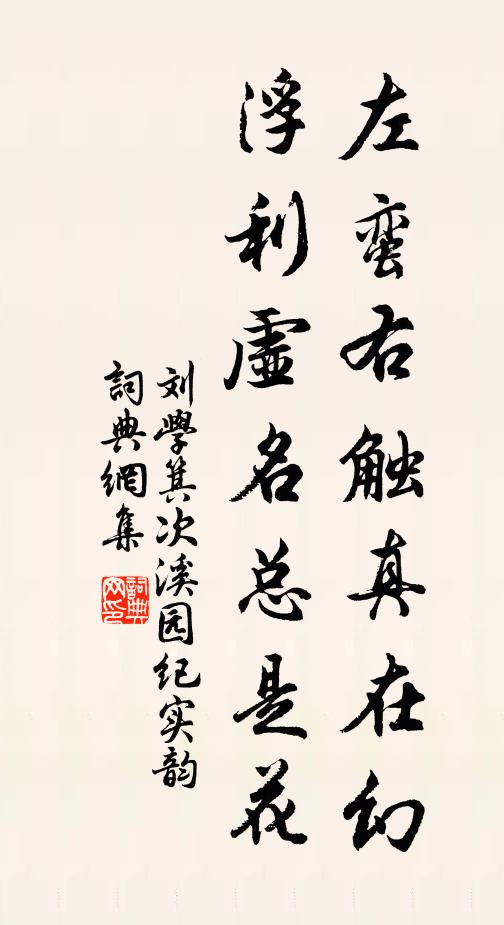 左蛮右触真在幻
浮利虚名总是花
刘学箕次溪园纪实韵
詞典網集
詞典
网印